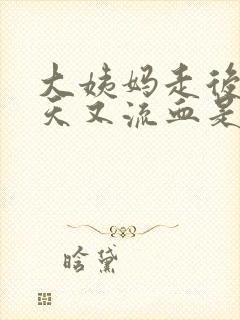 大姨妈走後
天又流血是
晗黛